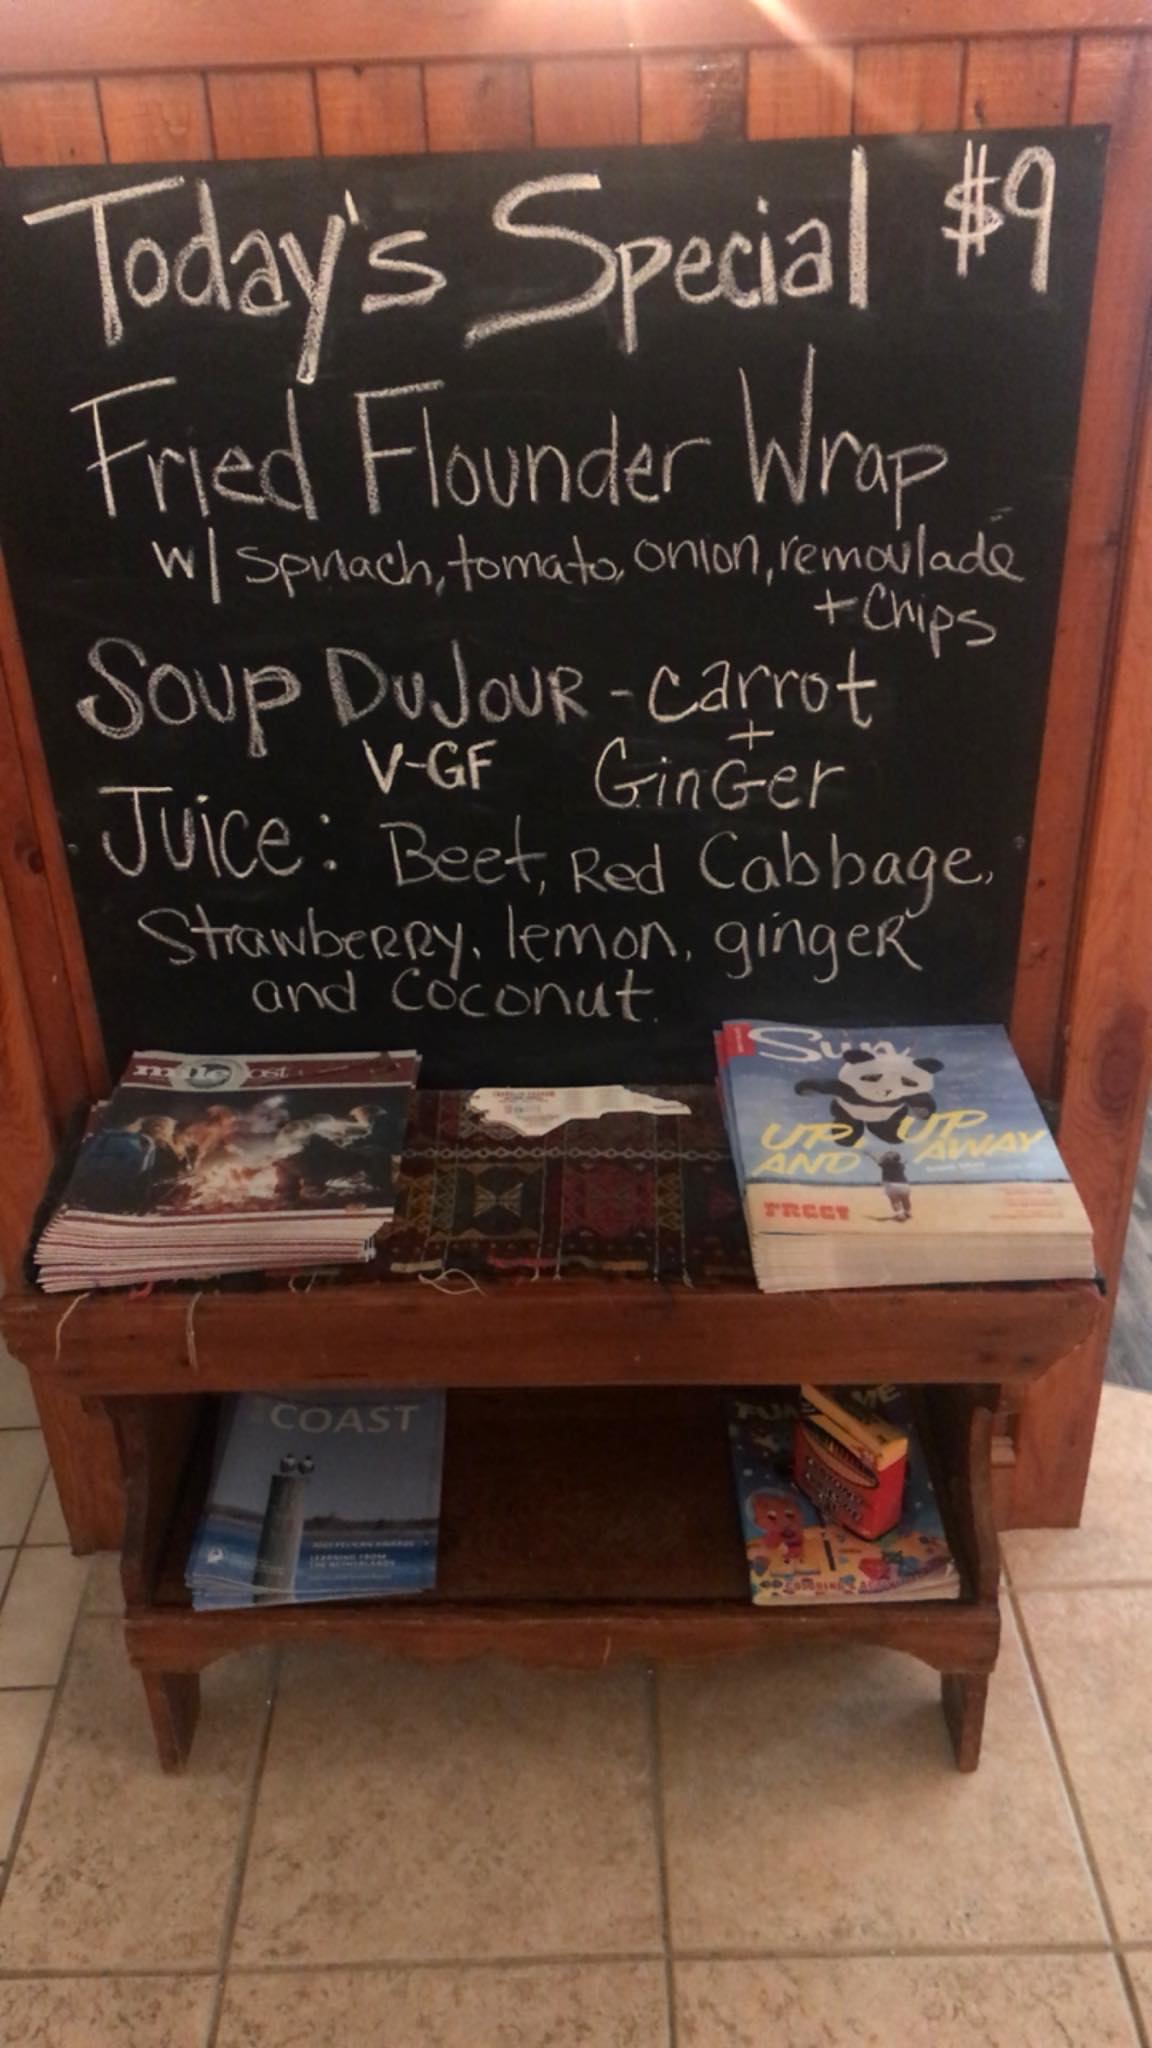 Today's Special $9
Fried Flounder Wrap
w/ spinach, tomato, onion, remoulade
+ Chips
Soup DuJour - carrot
+
V-GF GinGer
Juice: Beet, Red Cabbage,
Strawberry, lemon, ginger
and coconut.
Sun
UP, UP
AND AWAY
FREE!
COAST
LEARNING FROM
THE NETHERLANDS